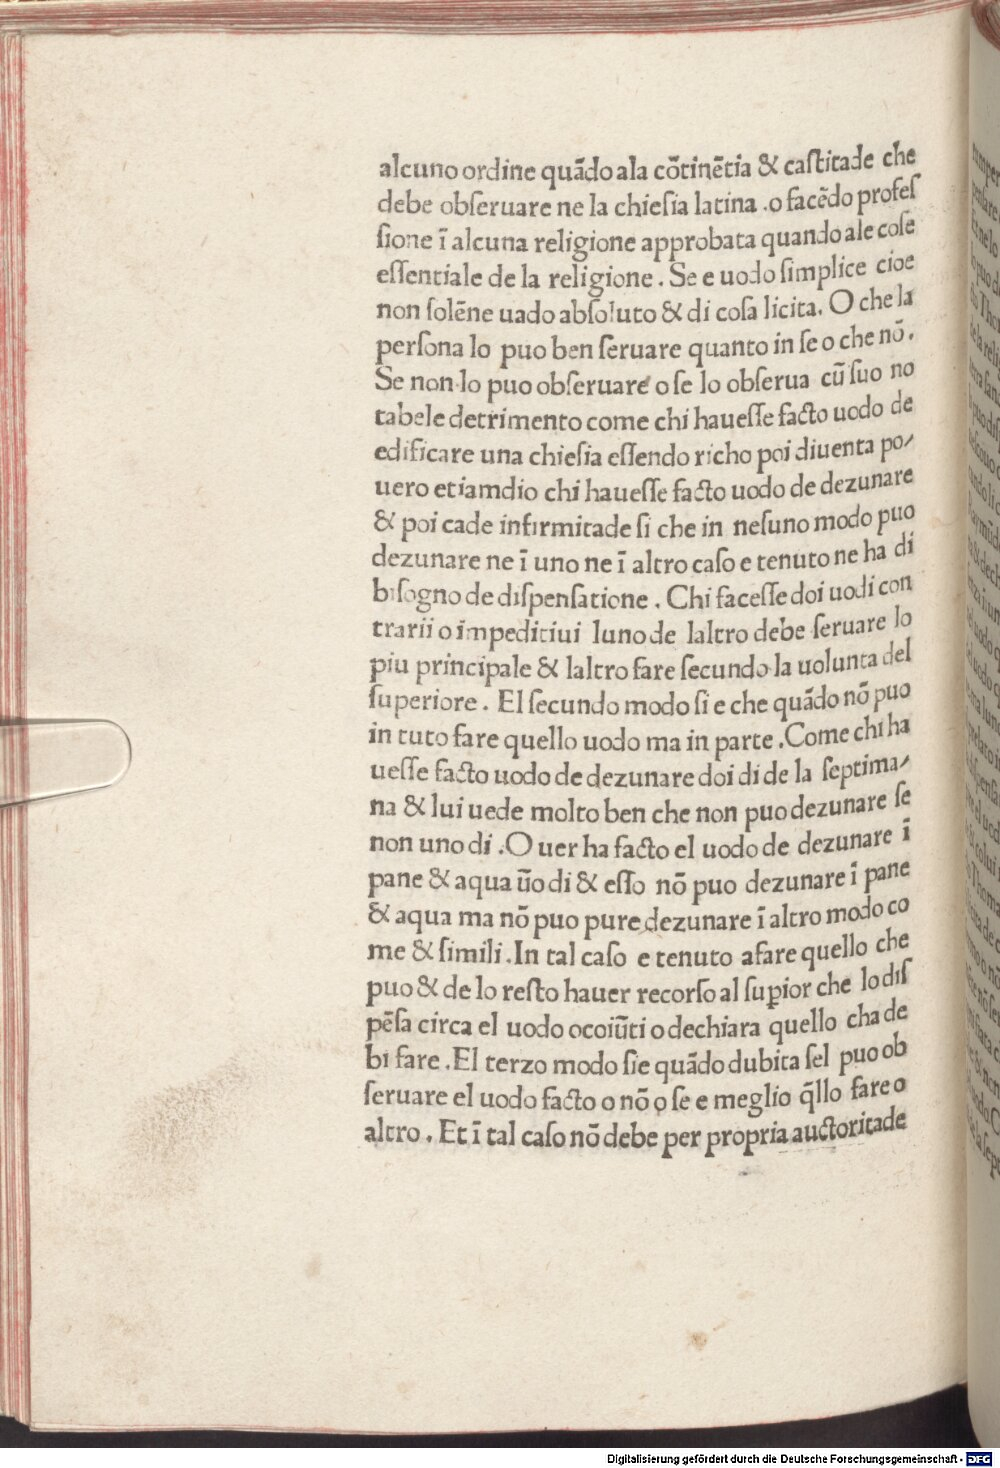 alcuno ordine quādo ala cōtinētia & caſtitade che
debe obſeruare ne la chieſia latina .o facēdo profeſ
ſione ī alcuna religione approbata quando ale coſe
eſſentiale de la religione . Se e uodo ſimplice cioe
non ſolēne uado abſoluto & di coſa licita. O che la
perſona lo puo ben ſeruare quanto in ſe o che nō.
Se non lo puo obſeruare o ſe lo obſerua cū ſuo no
tabele detrimento come chi haueſſe facto uodo de
edificare una chieſia eſſendo richo poi diuenta po/
uero etiamdio chi haueſſe facto uodo de dezunare
& poi cade infirmitade ſi che in neſuno modo puo
dezunare ne ī uno ne ī altro caſo e tenuto ne ha di
biſogno de diſpenſatione . Chi faceſſe doi uodi con
trarii o impeditiui luno de laltro debe ſeruare lo
piu principale & laltro fare ſecundo la uolunta del
ſuperiore . El ſecundo modo ſi e che quādo nō puo
in tuto fare quello uodo ma in parte .Come chi ha
ueſſe facto uodo de dezunare doi di de la ſeptima/
na & lui uede molto ben che non puo dezunare ſe
non uno di .O uer ha facto el uodo de dezunare ī
pane & aqua ūo di & eſſo nō puo dezunare ī pane
& aqua ma nō puo pure dezunare ī altro modo co
me & ſimili .In tal caſo e tenuto afare quello che
puo & de lo reſto hauer recorſo al ſuꝑior che lo diſ
pēſa circa el uodo ocoiūti o dechiara quello cha de
bi fare .El terzo modo ſie quādo dubita ſel puo ob
ſeruare el uodo facto o nō o ſe e meglio q̄llo fare o
altro . Et ī tal caſo nō debe per propria auctoritade
Digitalisierung gefördert durch die Deutsche Forschungsgemeinschaft - DFG